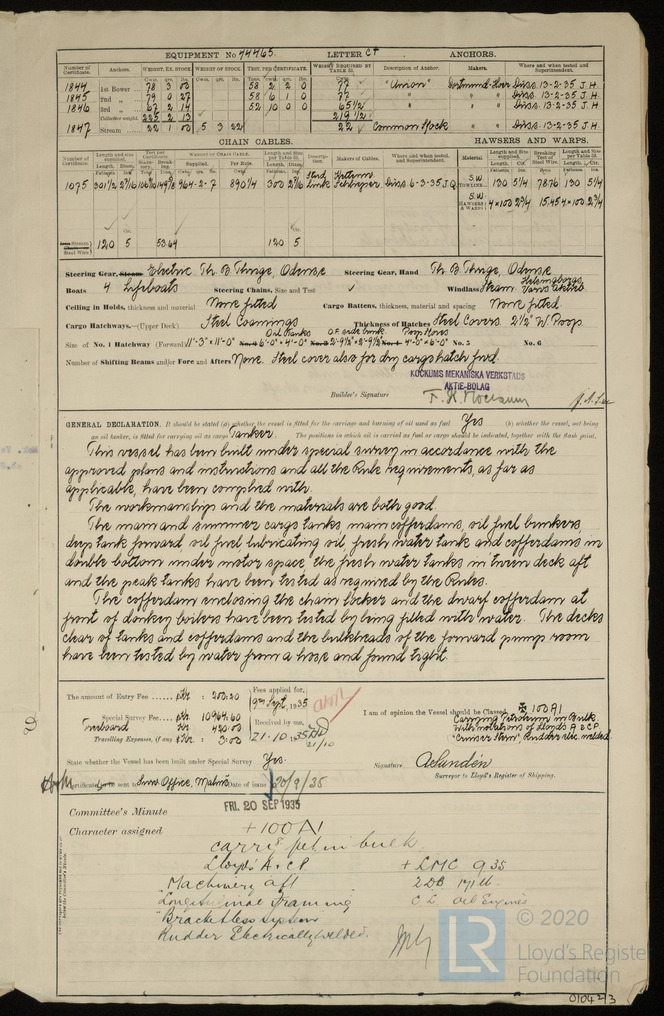 EQUIPMENT No 44465. LETTER C† ANCHORS.
Number of Certificate. Anchors. WEIGHT, EX. STOCK WEIGHT OF STOCK. TEST, PER CERTIFICATE. WEIGHT REQUIRED BY TABLE 53. Description of Anchor. Makers. Where and when tested and Superintendent.
1844 1st Bower 78 3 00 58 2 2 0 77 "Union" Diss. 13-2-35 J.H.
1845 2nd " 79 0 27 58 6 1 0 77 " " Diss. 13-2-35 J.H.
1846 3rd " 67 2 14 52 10 0 0 65 1/2 " " Diss. 13-2-35 J.H.
Collective weight 225 2 13 219 1/2
1847 Stream 22 1 00 5 3 22 22 Common Stock " Diss. 13-2-35 J.H.
CHAIN CABLES. HAWSERS AND WARPS.
Number of Certificate. Length and size supplied. Test per Certificate. WEIGHT OF CHAIN CABLE. Length and Size per Table 53. Description. Makers of Cables. Where and when tested, and Superintendent. Material Length and Size supplied. Breaking Test of Steel Wire. Length and Size per Table 53.
1075 301 1/2 2 7/16 964-2-7 890 1/4 300 2 7/16 Stud Link Diss 6-3-35 J.Q. S.W. TOWLINE 130 5 1/4 78.76 130 5 1/4
S.W. HAWSERS & WARPS 4 x 100 2 3/4 15.45 4 x 100 2 3/4
Stream Steel Wire 120 5 53.64 120 5
Steering Gear, Steam Electric Th. B. Thrige, Odense Steering Gear, Hand Th. B. Thrige, Odense
Boats 4 Lifeboats Steering Chains, Size and Test ✓ Windlass Steam. Helsingborgs Varfs Aktieb
Ceiling in Holds, thickness and material None fitted Cargo Battens, thickness, material and spacing None fitted.
Cargo Hatchways.—(Upper Deck). Steel Coamings Thickness of Hatches Steel Covers 2 1/2" W. Poop
Size of No. 1 Hatchway (Forward) 11'-3" x 11'-0" No. 2 Oil Tanks 6'-0" x 4'-0" No. 3 O.F. side bunk. 2-9 1/2" x 2-9 1/2" No. 4 4'-0" x 6'-0" No. 5 No. 6
Number of Shifting Beams and/or Fore and Afters None. Steel cover also for dry cargo hatch fwd.
KOCKUMS MEKANISKA VERKSTADS
AKTIE-BOLAG
Builder's Signature
GENERAL DECLARATION. It should be stated (a) whether the vessel is fitted for the carriage and burning of oil used as fuel Yes (b) whether the vessel, not being
an oil tanker, is fitted for carrying oil as cargo Tanker. The positions in which oil is carried as fuel or cargo should be indicated, together with the flash point.
This vessel has been built under special survey in accordance with the
approved plans and instructions and all the Rule requirements, as far as
applicable, have been complied with.
The workmanship and the materials are both good.
The main and summer cargo tanks, main cofferdams, oil fuel bunkers,
deep tank forward, oil fuel lubricating oil, fresh water tank and cofferdams in
double bottom under motor space, the fresh water tanks in tween deck aft
and the peak tanks have been tested as required by the Rules.
The cofferdam enclosing the chain locker and the dwarf cofferdam at
front of donkey boilers have been tested by being filled with water. The decks
clear of tanks and cofferdams and the bulkheads of the forward pump room
have been tested by water from a hose and found tight.
The amount of Entry Fee ...... Kr. : 200:20 Fees applied for,
9th Sept. 1935
Special Survey Fee.... Kr. 10964.60 Received by me,
Freeboard Kr. 420.00
Travelling Expenses, if any Kr. 3:00 21-10 1935
21/10
I am of opinion the Vessel should be Classed ✠ 100 A1
Carrying Petroleum in Bulk.
With notations of Lloyds A & CP.
"Cruiser Stern", Rudder elec. welded.
State whether the Vessel has been built under Special Survey Yes. Signature. A Sandén
Surveyor to Lloyd's Register of Shipping.
Certificate to be sent to Surv. Office, Malmö Date of issue 20/9/35
FRI. 20 SEP 1935
Committee's Minute
Character assigned + 100 A1
carrg pet. in bulk.
Lloyd's A & CP + LMC 9.35
Machinery aft 2DB 171 lb.
Longitudinal Framing CL Oil Engines
Bracketless System
Rudder Electrically Welded.
© 2020
LR Lloyd's Register
Foundation
010423